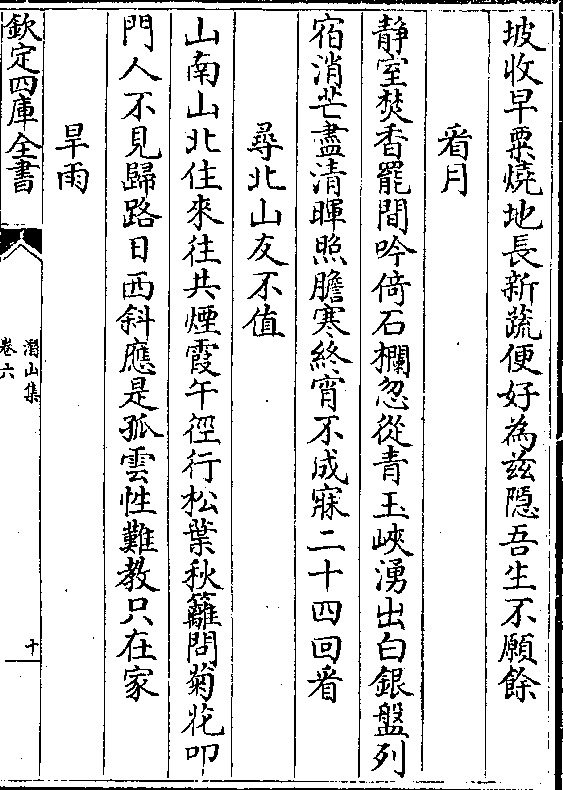 坡收早粟燒地長新蔬便好為兹隠吾生不願餘
看月
静室焚香罷間吟倚石欄忽從青玉峽湧出白銀盤列
宿消芒盡清暉照膽寒終宵不成寐二十四回看
尋北山友不值
山南山北住來往共煙霞午徑行松葉秋籬問菊花叩
門人不見歸路日西斜應是孤雲性難教只在家
旱雨
欽定四庫全書
潛山集
卷六
十